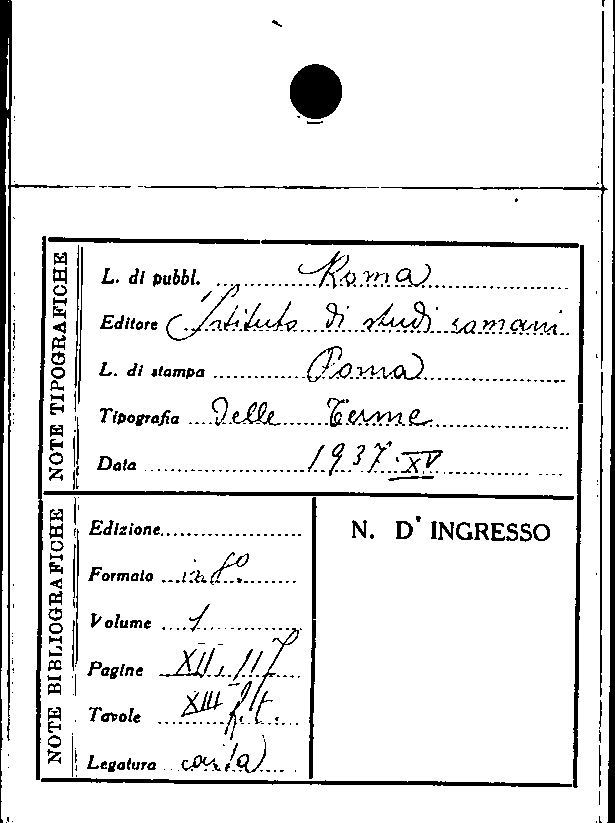 NOTE TIPOGRAFICHE
L. di pubbl. Roma
Editore Istituto di studi romani
L. di stampa Roma
Tipografia Delle Terme
Data 1937.XV
NOTE BIBLIOGRAFICHE
Edizione
Formato in 8º
Volume 1
Pagine XII, 117
Tavole XIII f.t.
Legatura carta
N. D'INGRESSO